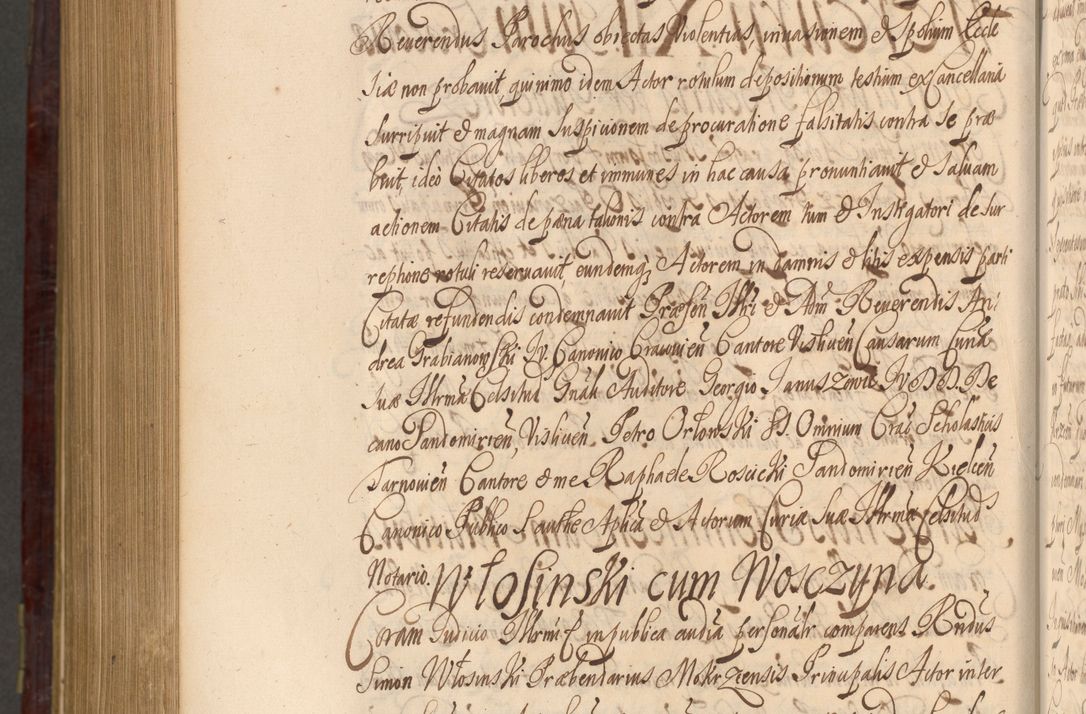 Reverendus Parochus obiectas violentias, invasionem & spolium Eccle
siæ non probavit, quinimo idem Actor rotulum depositionum testium ex Cancellaria
surripuit & magnam suspicionem de procuratione falsitatis contra se præ
buit, ideo Citatos liberos et immunes in hac causa pronuntiavit & salvam
actionem Citatis de pæna talionis contra Actorem tum & Instigatori de sur
reptione rotuli reservavit, eundemq3 Actorem in damnis & litis expensis parti
Citatæ refundendis condemnavit Præsen Illri & Adm Reverendis An:
drea Grabianowski IV. Canonico Cracovien Cantore Visliven Causarum Curiæ
suæ Illrmæ Celsitud Gnali Auditore Georgio Januszowic IVDD. De
cano Sandomirien, Visliven, Petro Orłowski SS. Omnium Crac Scholastico
Tarnovien Cantore & me Raphaele Roscicki Sandomirien Kielcen
Canonico Publico S. authe Aplica & Actorum Curiæ suæ Illrmæ Celsitud
Notario. Włosinski cum Wosczyna.
Coram Judicio Illrmi E in publica audia personalr comparens Rndus
Simon Włosinski Præbendarius Mokrzensis Principalis Actor inter